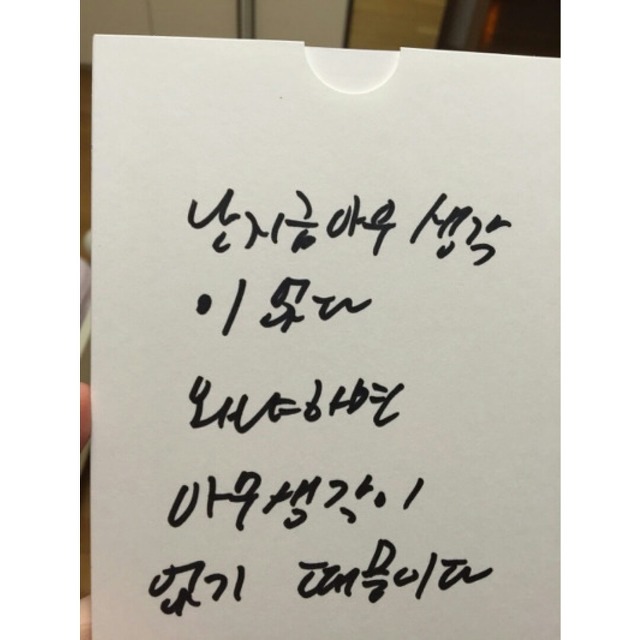 난 지금 아무 생각
이 없다
왜냐하면
아무 생각이
없기 때문이다